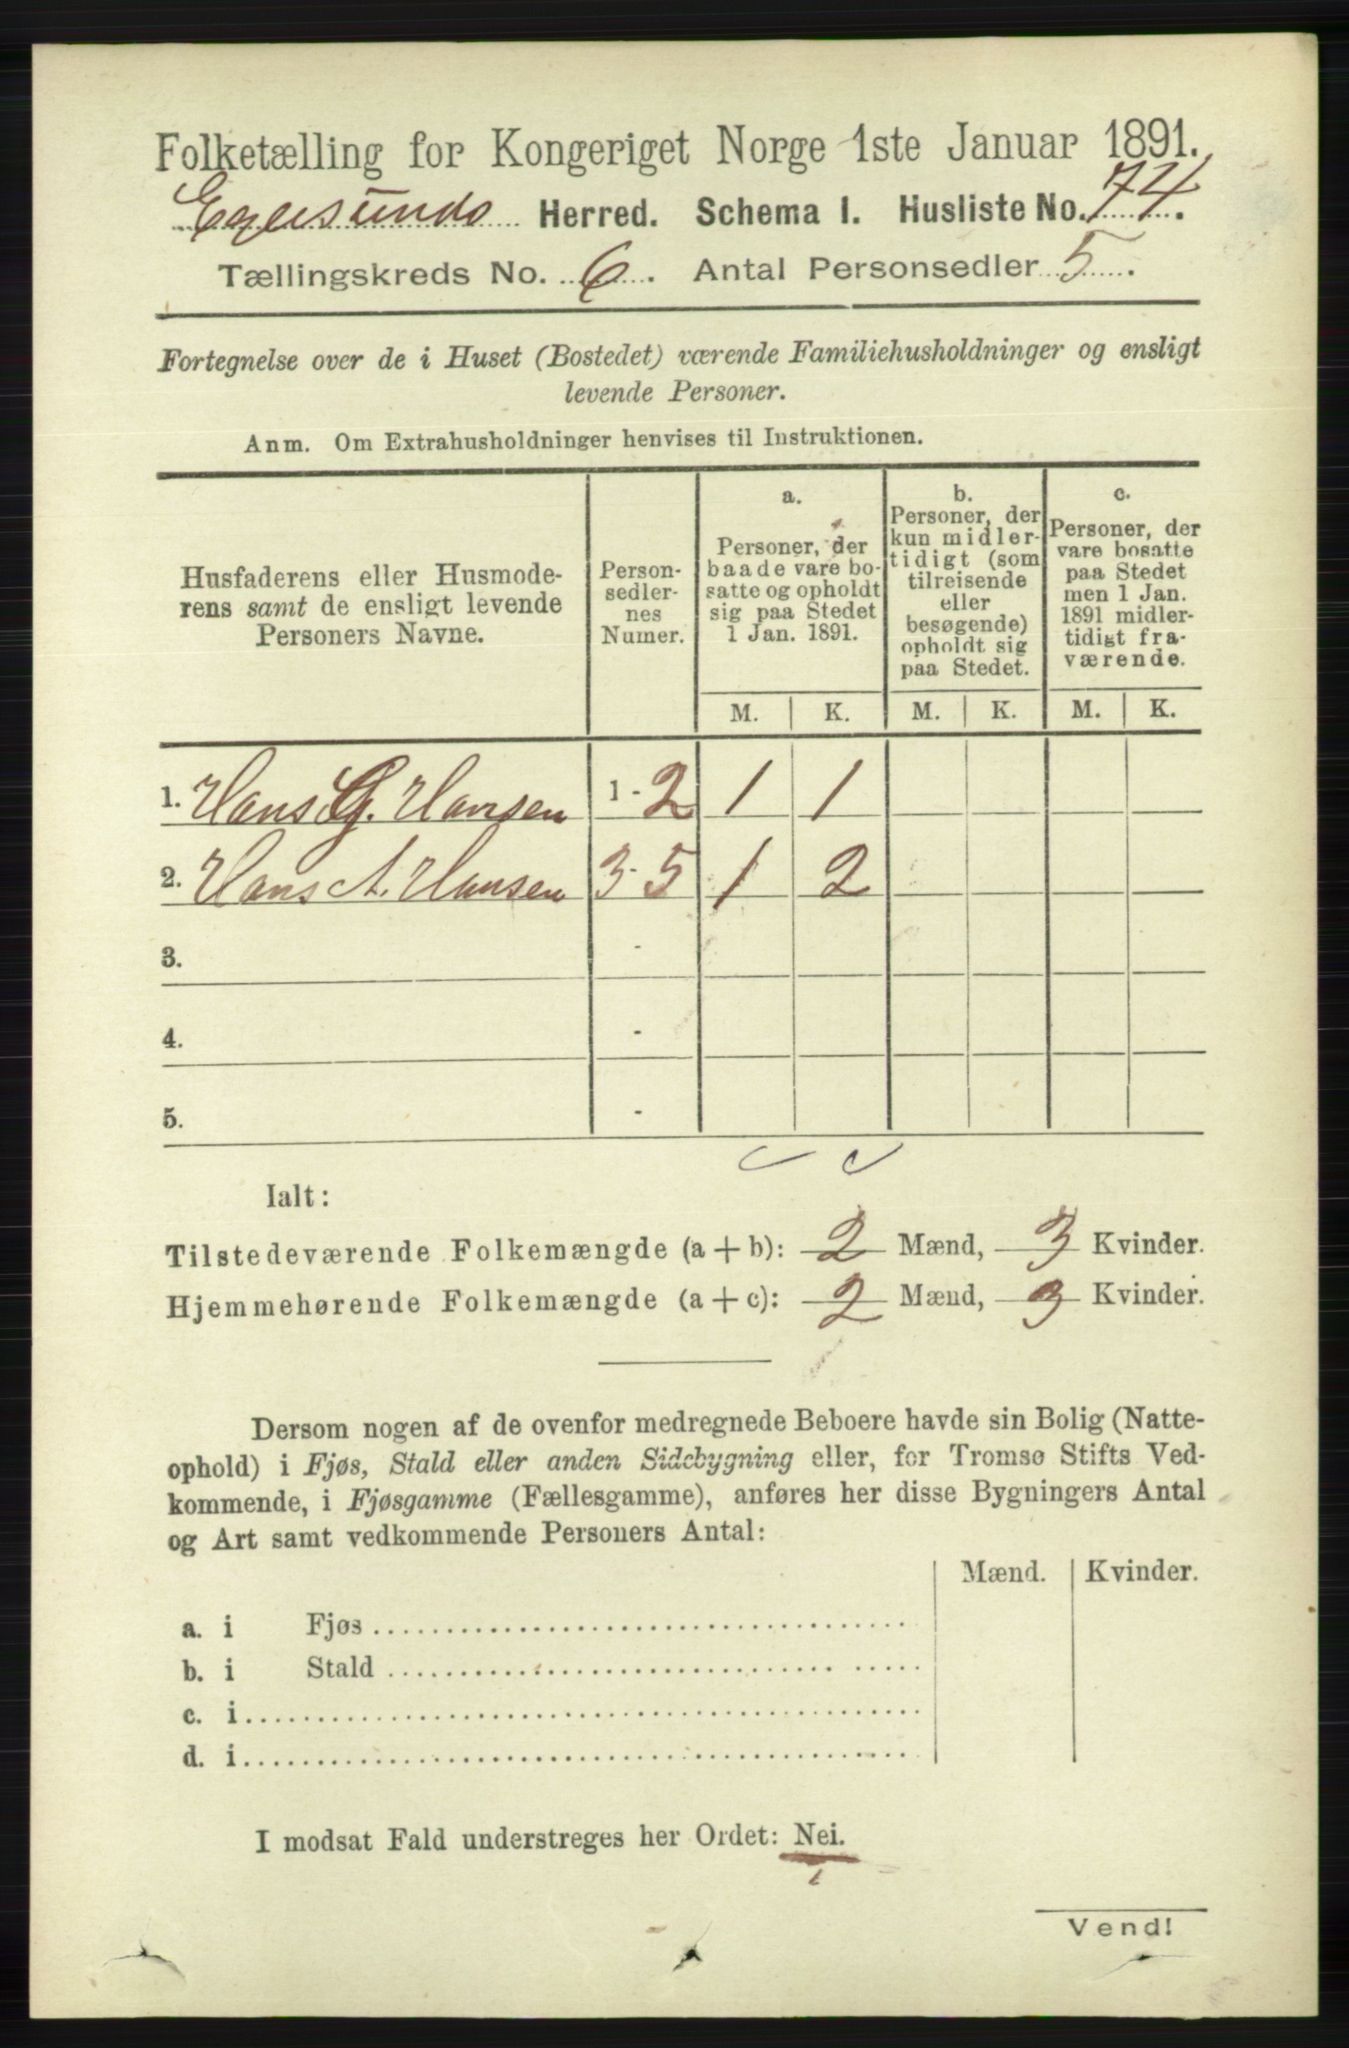 Folketælling for Kongeriget Norge 1ste Januar 1891.
Egersunds Herred. Schema I. Husliste No. 74.
Tællingskreds No. 6. Antal Personsedler 5.
Fortegnelse over de i Huset (Bostedet) værende Familiehusholdninger og ensligt
levende Personer.
Anm. Om Extrahusholdninger henvises til Instruktionen.
Husfaderens eller Husmode-
rens samt de ensligt levende
Personers Navne.
Person-
sedler-
nes
Numer.
a.
Personer, der
baade vare bo-
satte og opholdt
sig paa Stedet
1 Jan. 1891.
b.
Personer, der
kun midler-
tidigt (som
tilreisende
eller
besøgende)
opholdt sig
paa Stedet.
c.
Personer, der
vare bosatte
paa Stedet
men 1 Jan.
1891 midler-
tidigt fra-
værende.
M. K. M. K. M. K.
1. Hans G. Hansen 1 - 2 1 1
2. Hans A. Hansen 3 - 5 1 2
3. -
4. -
5. -
Ialt:
Tilstedeværende Folkemængde (a + b): 2 Mænd, 3 Kvinder.
Hjemmehørende Folkemængde (a + c): 2 Mænd, 3 Kvinder.
Dersom nogen af de ovenfor medregnede Beboere havde sin Bolig (Natte-
ophold) i Fjøs, Stald eller anden Sidebygning eller, for Tromsø Stifts Ved-
kommende, i Fjøsgamme (Fællesgamme), anføres her disse Bygningers Antal
og Art samt vedkommende Personers Antal:
Mænd. Kvinder.
a. i Fjøs
b. i Stald
c. i
d. i
I modsat Fald understreges her Ordet: Nei.
Vend!